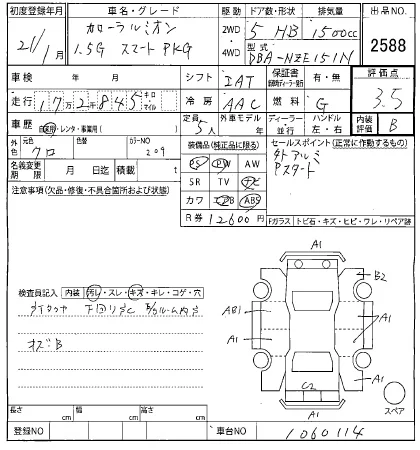 初度登録年月 車名・グレード 駆動 ドア数/形状 排気量 出品NO.
21/1月 カローラルミオン 1.5G スマートPKG 2WD・4WD 5 HB 1500cc 2588
型式 DBA-NZE151N
車検 年 月 シフト IAT 保証書 有・無 評価点 3.5
走行 172845 キロ マイル 冷房 AAC 燃料 G
車歴 自家用・レンタ・事業用( ) 定員 5人 外車モデル年 ディーラー・並行 ハンドル 左・右 内装評価 B
外色 元色 クロ 色替 カラーNO 209 装備品(純正品に限る) セールスポイント(正常に作動するもの)
PS PW AW 外アルミ
名義変更期限 月 日迄 積載 t SR TV ナビ Pスタート
注意事項(欠品・修復・不具合箇所および状態) カワ エアB ABS
R券 12600円 Fガラス トビ石・キズ・ヒビ・ワレ・リペア跡
A1
B2
検査員記入 内装 汚れ・スレ・キズ・キレ・コゲ・穴
AB1
下回りサビ
A1 A1
オズB
C2 A1
A1 スペア
長さ cm 幅 cm 高さ cm
登録NO 車台NO 1060114